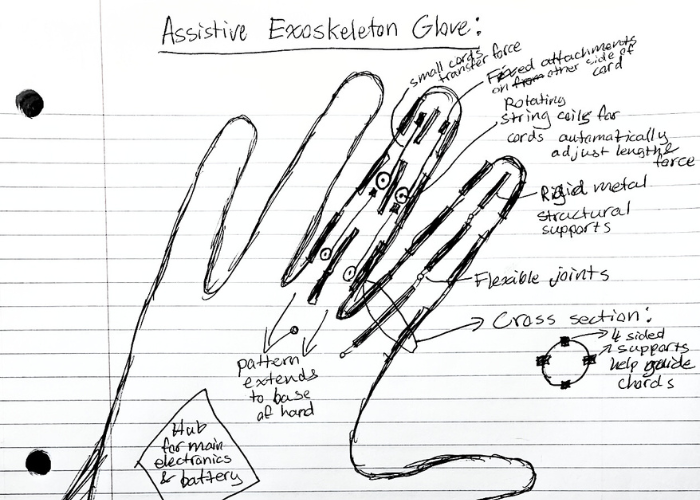 Assistive Exoskeleton Glove:
small cords
transfer force
Fixed attachments
on from other side of
cord
Rotating
string coils for
cords automatically
adjust length
force
Rigid metal
structural
supports
Flexible joints
Cross section:
4 sided
supports
help guide
chords
pattern
extends
to base
of hand
Hub
for main
electronics
& battery